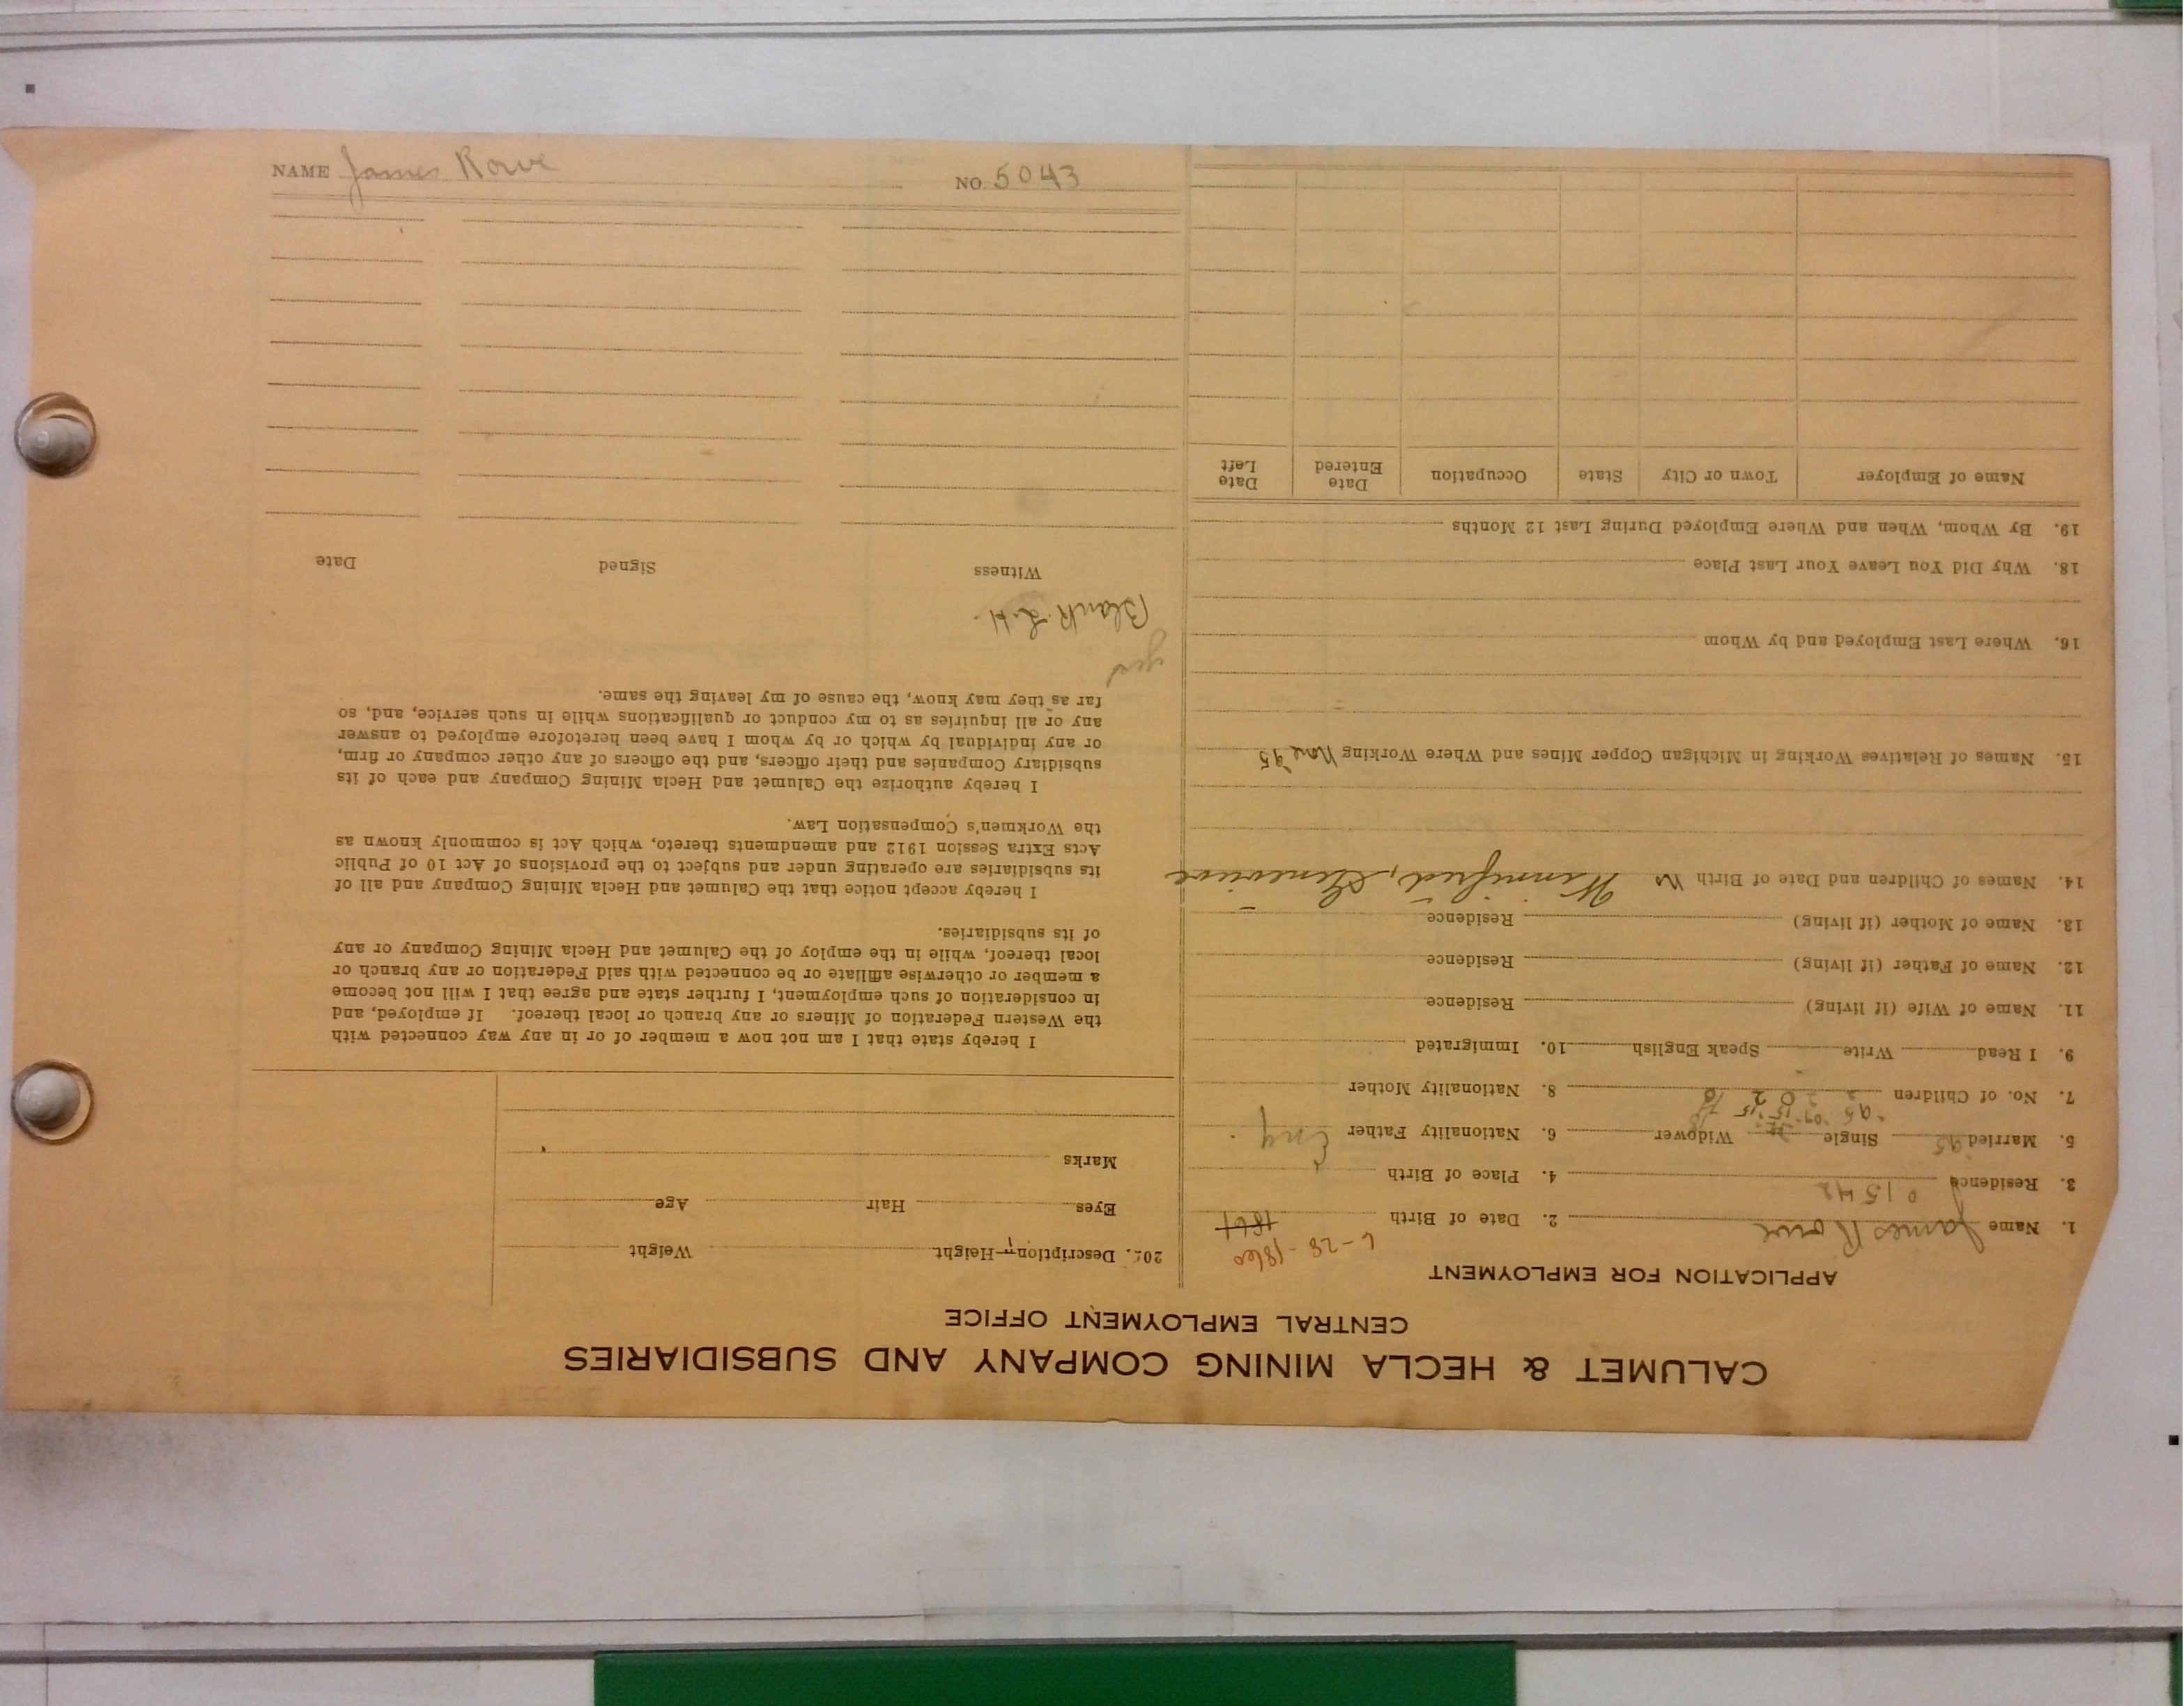 CALUMET & HECLA MINING COMPANY AND SUBSIDIARIES
CENTRAL EMPLOYMENT OFFICE
APPLICATION FOR EMPLOYMENT
6-28-1860
1. Name James Rowe 2. Date of Birth 1864
01542
3. Residence 4. Place of Birth
5. Married '95 Single Widower 6. Nationality Father Eng.
'95 '09 '13 '15
7. No. of Children 2 0 2 8. Nationality Mother
9. I Read Write Speak English 10. Immigrated
11. Name of Wife (if living) Residence
12. Name of Father (if living) Residence
13. Name of Mother (if living) Residence
14. Names of Children and Date of Birth Winnifred, Genevieve
15. Names of Relatives Working in Michigan Copper Mines and Where Working None '95
16. Where Last Employed and by Whom
18. Why Did You Leave Your Last Place
19. By Whom, When and Where Employed During Last 12 Months
Name of Employer Town or City State Occupation Date Entered Date Left
20. Description—Height Weight
Eyes Hair Age
Marks
I hereby state that I am not now a member of or in any way connected with
the Western Federation of Miners or any branch or local thereof. If employed, and
in consideration of such employment, I further state and agree that I will not become
a member or otherwise affiliate or be connected with said Federation or any branch or
local thereof, while in the employ of the Calumet and Hecla Mining Company or any
of its subsidiaries.
I hereby accept notice that the Calumet and Hecla Mining Company and all of
its subsidiaries are operating under and subject to the provisions of Act 10 of Public
Acts Extra Session 1912 and amendments thereto, which Act is commonly known as
the Workmen's Compensation Law.
I hereby authorize the Calumet and Hecla Mining Company and each of its
subsidiary Companies and their officers, and the officers of any other company or firm,
or any individual by which or by whom I have been heretofore employed to answer
any or all inquiries as to my conduct or qualifications while in such service, and, so
far as they may know, the cause of my leaving the same.
yes
Blank L.H.
Witness Signed Date
NAME James Rowe NO. 5043